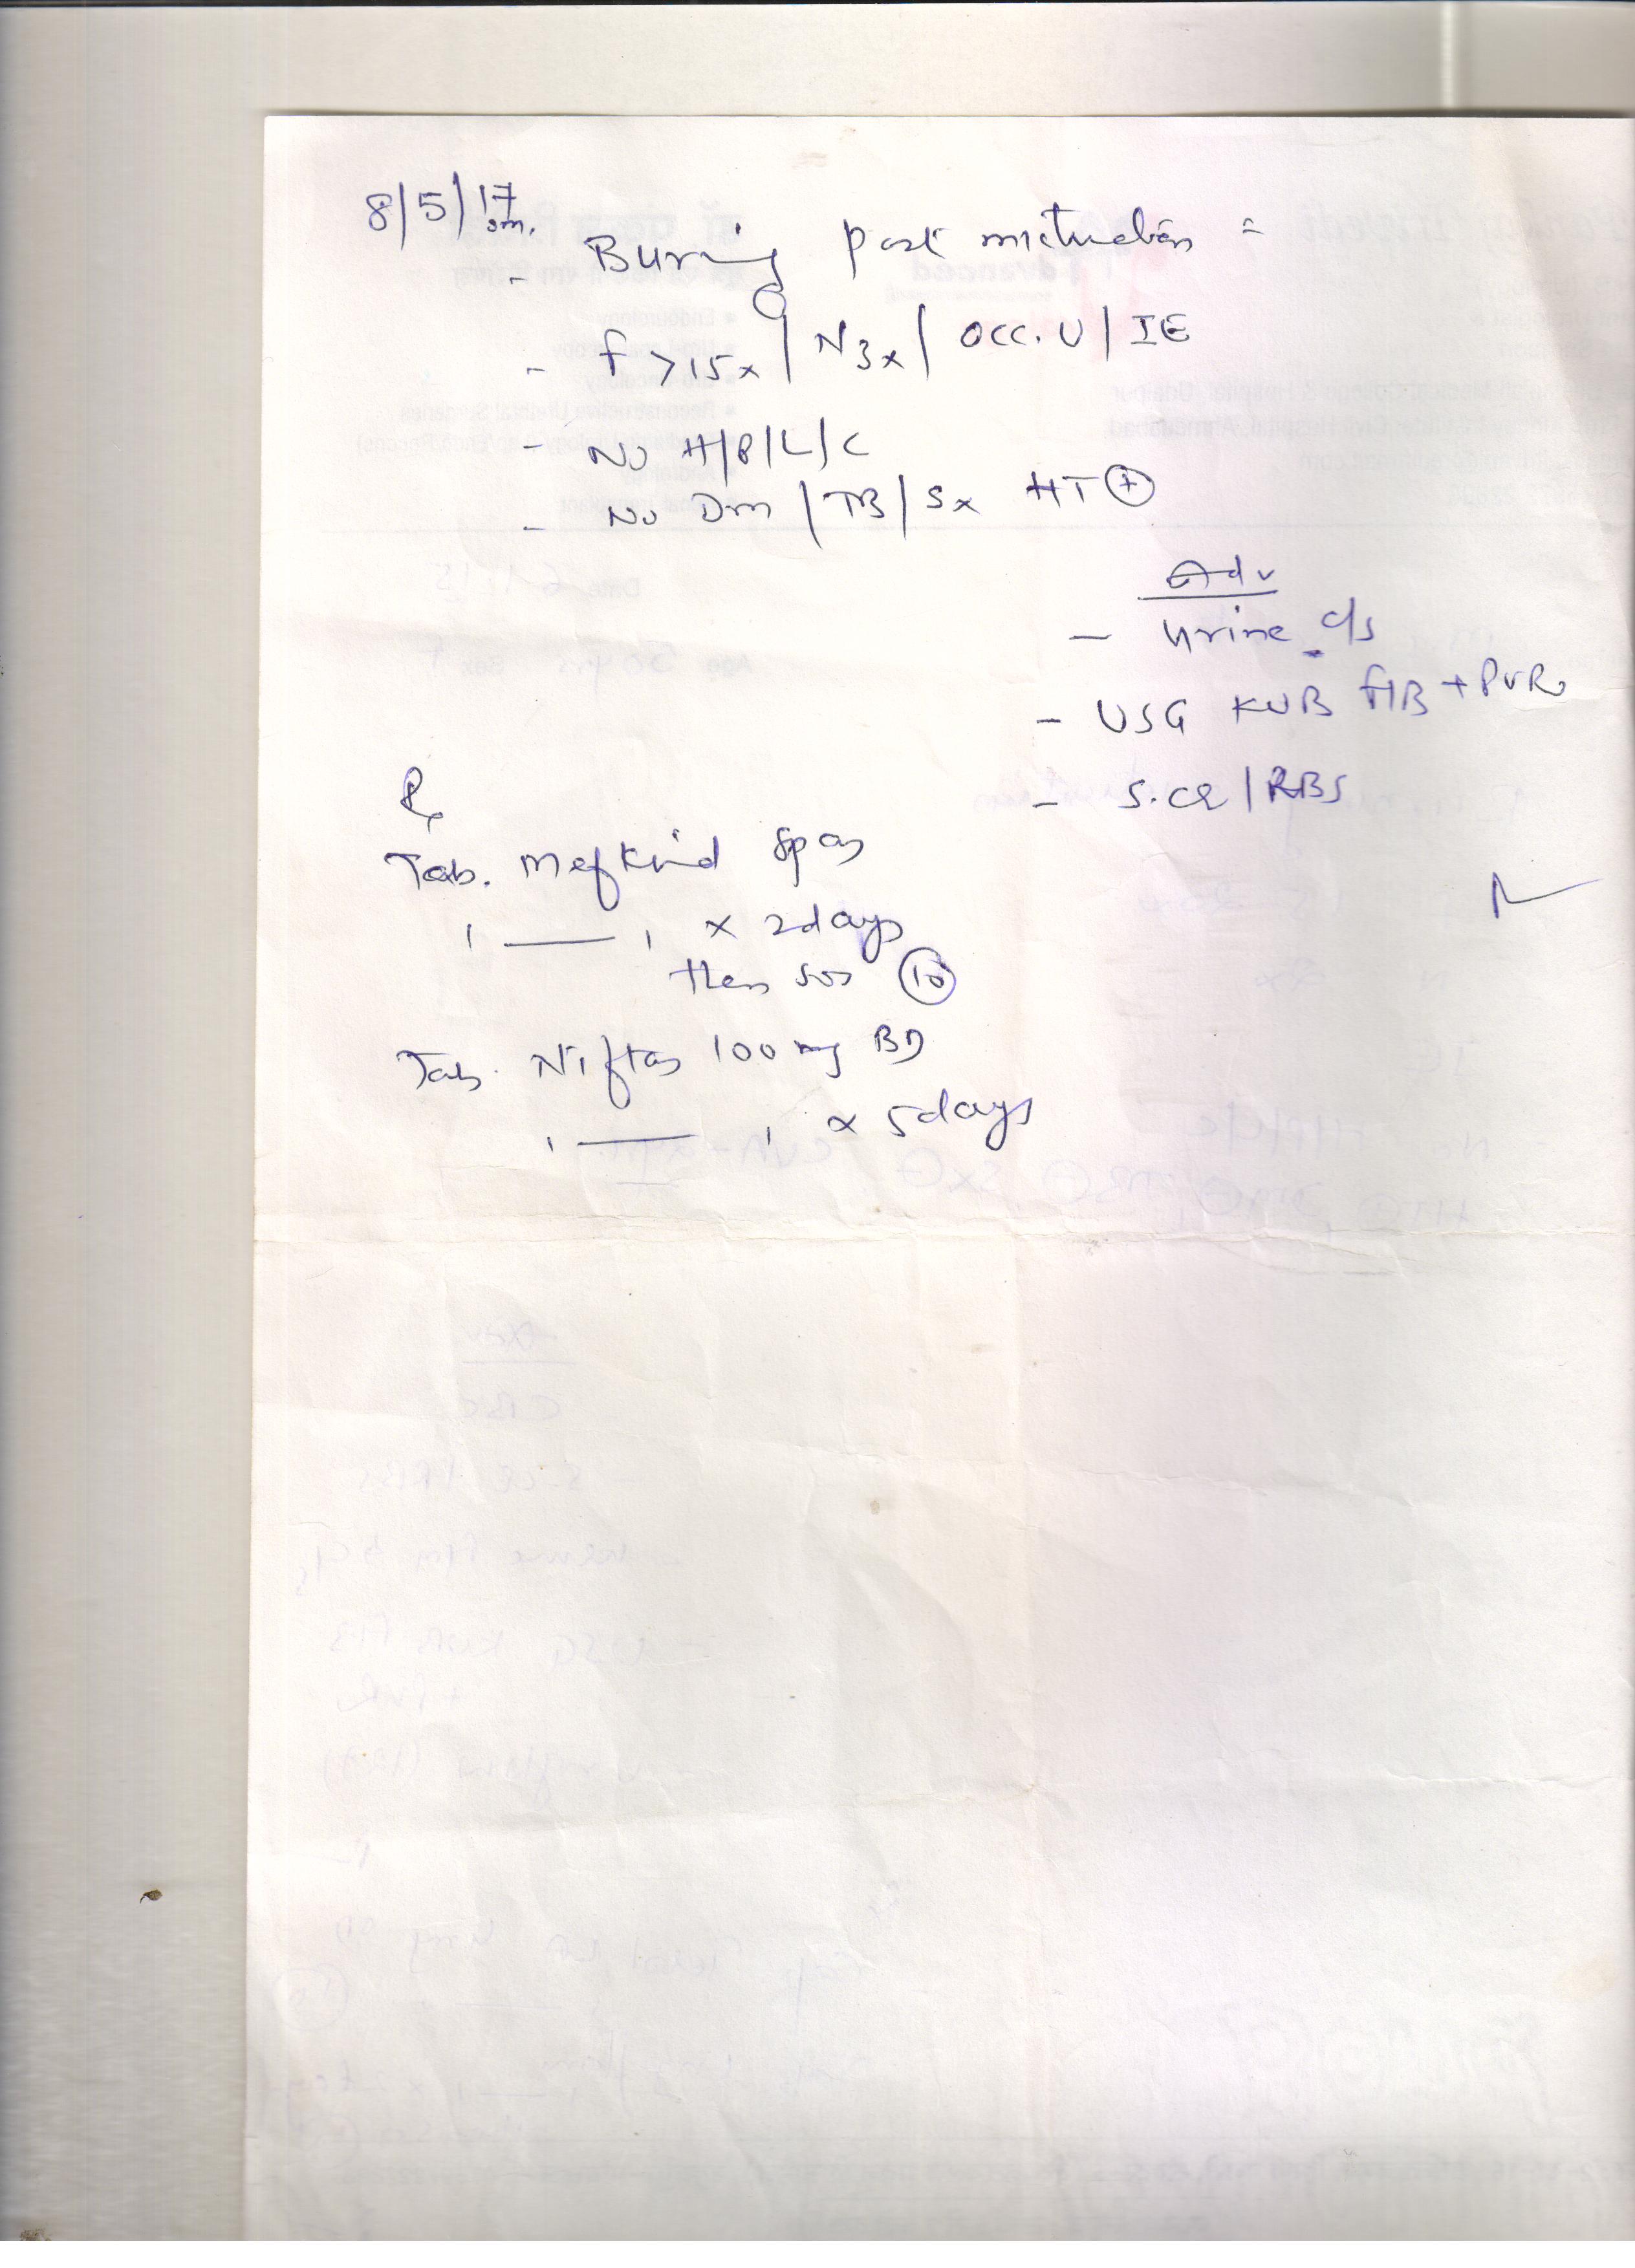 8/5/17
- Burning post micturition =
- f >15x / N3x / occ. U / IE
- No H/P/L/C
- No Dm / TB / Sx HT ⊕
Adv
- Urine c/s
- USG KUB f/B + PVR
- S.CR / RBS
Rx
Tab. Mefkind Spas
1 —— 1 x 2days
then sos (10)
Tab. Niftas 100mg BD
1 —— 1 x 5days